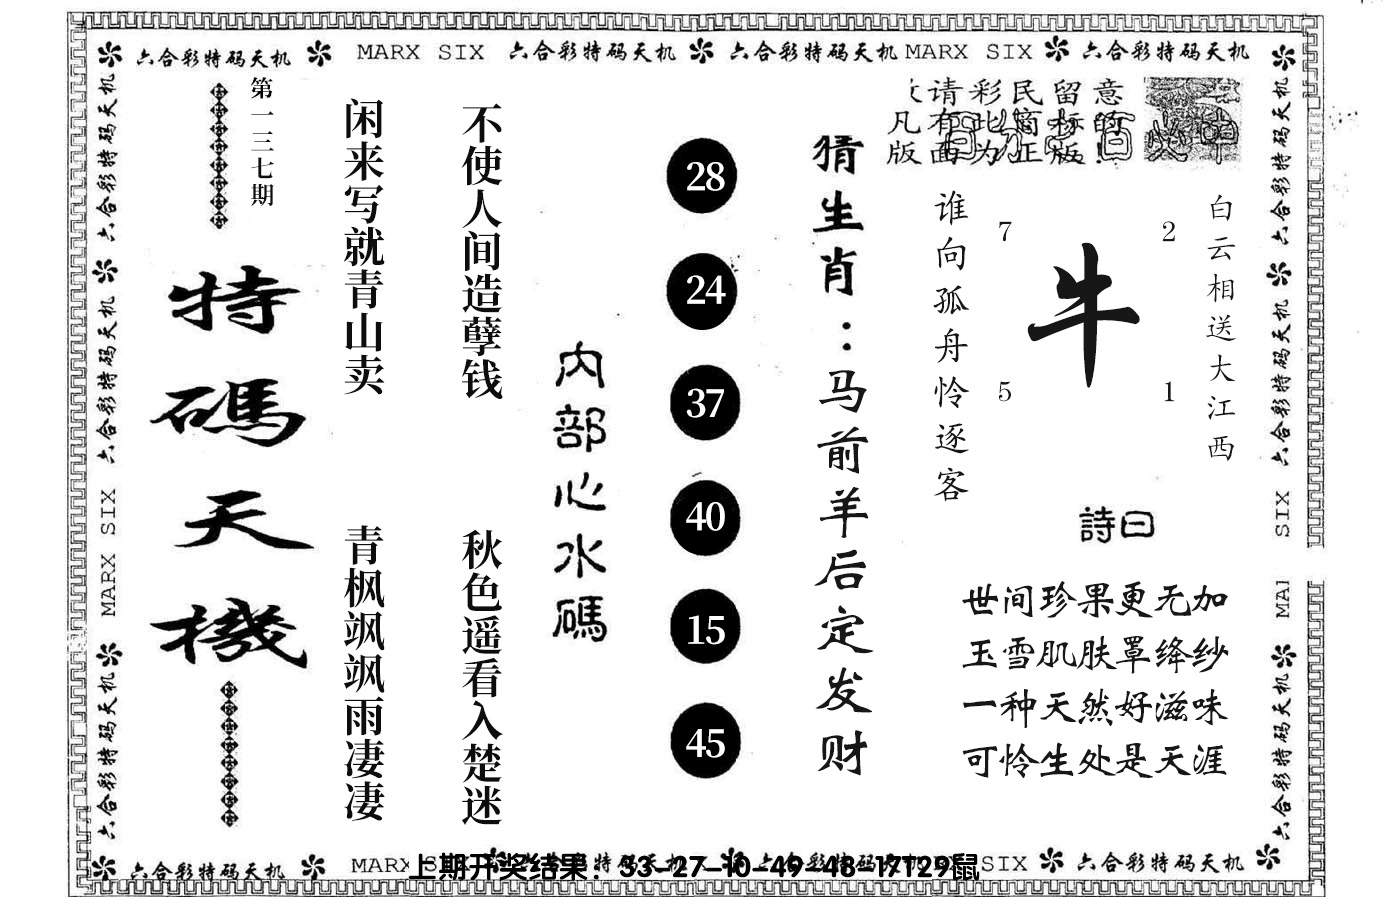 六合彩特码天机
MARX SIX
六合彩特码天机
六合彩特码天机
MARX SIX
六合彩特码天机
请彩民留意
凡有此商标的
版面为正版!
白云相送大江西
2
1
牛
7
5
谁向孤舟怜逐客
詩曰
世间珍果更无加
玉雪肌肤罩绛纱
一种天然好滋味
可怜生处是天涯
猜生肖：马前羊后定发财
28
24
37
40
15
45
内部心水碼
不使人间造孽钱
秋色遥看入楚迷
闲来写就青山卖
青枫飒飒雨凄凄
第一三七期
特碼天機
六合彩特码天机
六合彩特码天机
MARX SIX
六合彩特码天机
六合彩特码天机
六合彩特码天机
SIX
MA
六合彩特码天机
六合彩特码天机
MARX
上期开奖结果：33-27-10-49-48-17T29鼠
SIX
六合彩特码天机